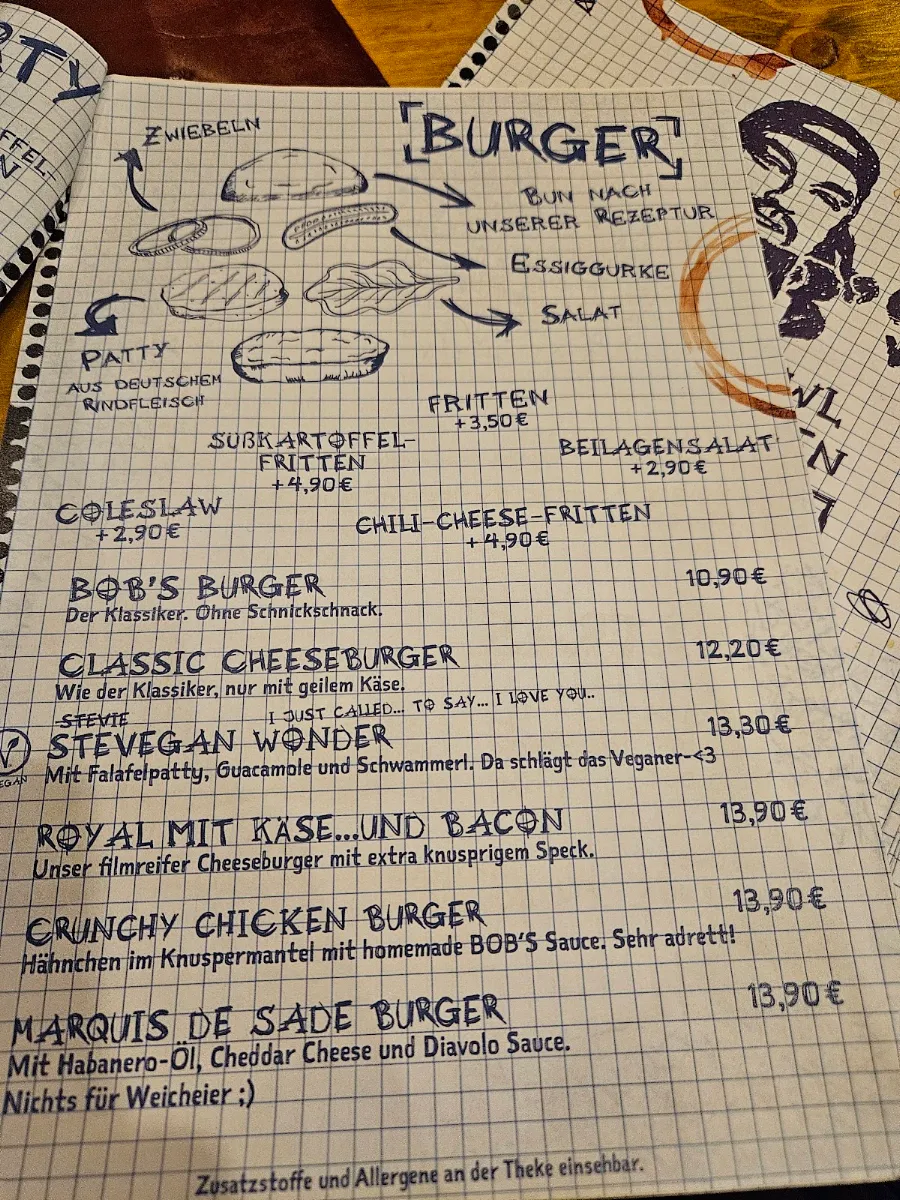 BURGER
ZWIEBELN
BUN NACH
UNSERER REZEPTUR
ESSIGGURKE
SALAT
PATTY
AUS DEUTSCHEM
RINDFLEISCH
FRITTEN
+3,50€
SÜßKARTOFFEL-
FRITTEN
+4,90€
BEILAGENSALAT
+2,90€
COLESLAW
+2,90€
CHILI-CHEESE-FRITTEN
+4,90€
BOB'S BURGER 10,90€
Der Klassiker. Ohne Schnickschnack.
CLASSIC CHEESEBURGER 12,20€
Wie der Klassiker, nur mit geilem Käse.
STEVIE I JUST CALLED... TO SAY... I LOVE YOU..
STEVEGAN WONDER 13,30€
Mit Falafelpatty, Guacamole und Schwammerl. Da schlägt das Veganer-<3
ROYAL MIT KÄSE...UND BACON 13,90€
Unser filmreifer Cheeseburger mit extra knusprigem Speck.
CRUNCHY CHICKEN BURGER 13,90€
Hähnchen im Knuspermantel mit homemade BOB'S Sauce. Sehr adrett!
MARQUIS DE SADE BURGER 13,90€
Mit Habanero-Öl, Cheddar Cheese und Diavolo Sauce.
Nichts für Weicheier ;)
Zusatzstoffe und Allergene an der Theke einsehbar.